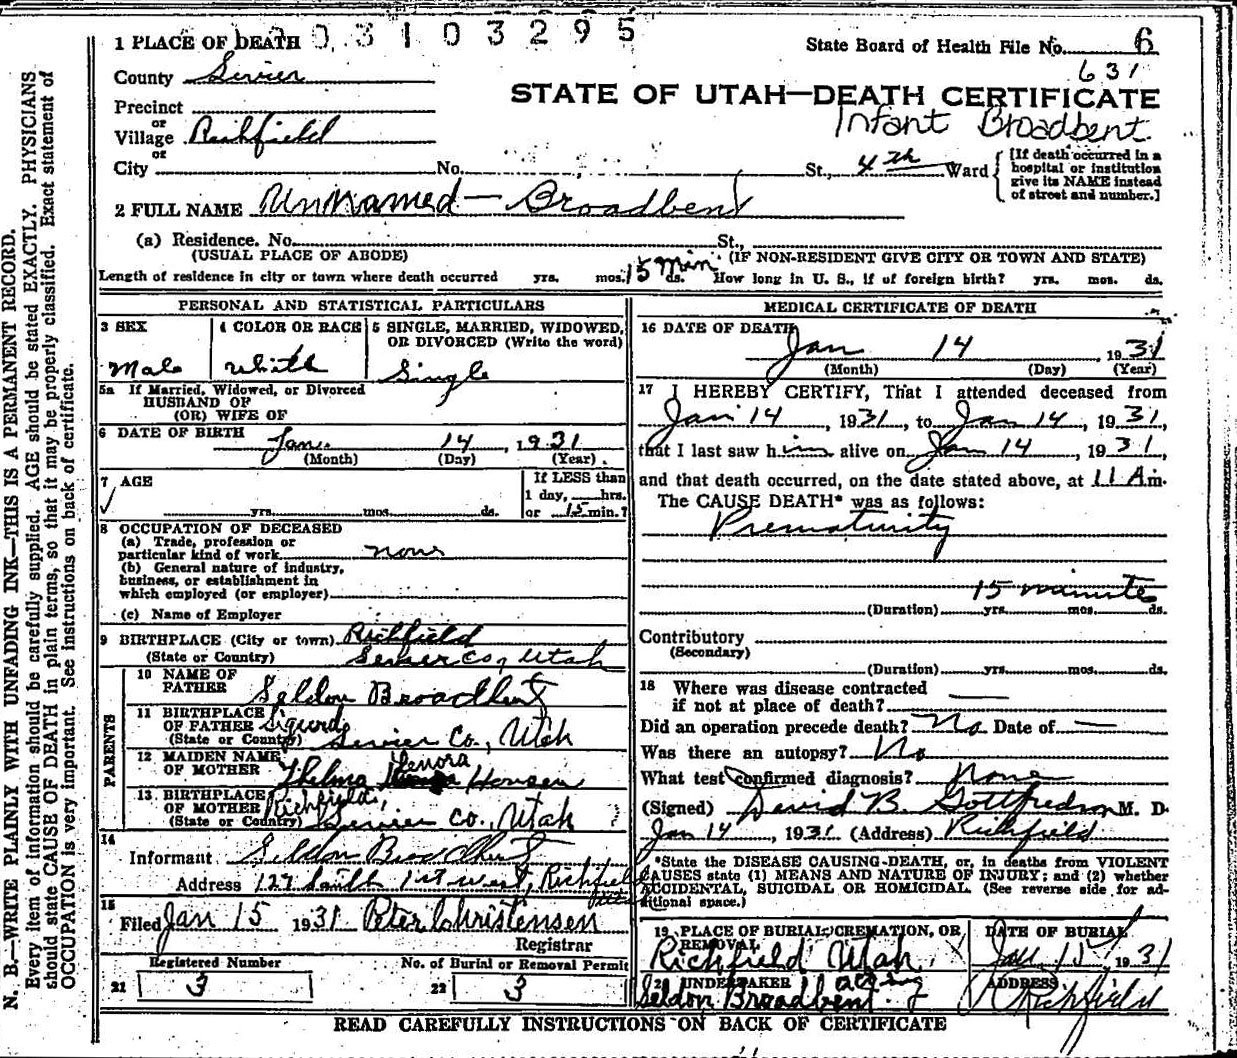 0 3 1 0 3 2 9 5
1 PLACE OF DEATH
State Board of Health File No. 6
County Sevier
631
STATE OF UTAH—DEATH CERTIFICATE
Precinct
or
Village Richfield
Infant Broadbent
or
City No. St., 4th Ward
[If death occurred in a
hospital or institution
give its NAME instead
of street and number.]
2 FULL NAME Unnamed — Broadbent
(a) Residence. No. St.,
(USUAL PLACE OF ABODE) (IF NON-RESIDENT GIVE CITY OR TOWN AND STATE)
Length of residence in city or town where death occurred yrs. mos. 15 min ds. How long in U. S., if of foreign birth? yrs. mos. ds.
PERSONAL AND STATISTICAL PARTICULARS
3 SEX
Male
4 COLOR OR RACE
White
5 SINGLE, MARRIED, WIDOWED,
OR DIVORCED (Write the word)
Single
5a If Married, Widowed, or Divorced
HUSBAND OF
(OR) WIFE OF
6 DATE OF BIRTH Jan. 14, 1931
(Month) (Day) (Year)
7 AGE
yrs. mos. ds.
If LESS than
1 day, hrs.
or 15 min.?
8 OCCUPATION OF DECEASED
(a) Trade, profession or
particular kind of work none
(b) General nature of industry,
business, or establishment in
which employed (or employer)
(c) Name of Employer
9 BIRTHPLACE (City or town) Richfield
(State or Country) Sevier Co, Utah
PARENTS
10 NAME OF
FATHER Seldon Broadbent
11 BIRTHPLACE
OF FATHER Sigurd,
(State or Country) Sevier Co., Utah
12 MAIDEN NAME
OF MOTHER Thelma Lenora Hansen
13 BIRTHPLACE
OF MOTHER Richfield,
(State or Country) Sevier Co., Utah
14
Informant Seldon Broadbent
Address 127 South 1st West, Richfield
Utah
15
Filed Jan 15 1931 Peter Christensen
Registrar
Registered Number
21 3
No. of Burial or Removal Permit
22 3
MEDICAL CERTIFICATE OF DEATH
16 DATE OF DEATH
Jan 14, 1931
(Month) (Day) (Year)
17 I HEREBY CERTIFY, That I attended deceased from
Jan 14, 1931, to Jan 14, 1931,
that I last saw him alive on Jan 14, 1931,
and that death occurred, on the date stated above, at 11 A m.
The CAUSE DEATH* was as follows:
Prematurity
15 minutes
(Duration) yrs. mos. ds.
Contributory
(Secondary)
(Duration) yrs. mos. ds.
18 Where was disease contracted
if not at place of death?
Did an operation precede death? No Date of —
Was there an autopsy? No
What test confirmed diagnosis? None
(Signed) David B. Gottfredson M. D.
Jan 14, 1931 (Address) Richfield
*State the DISEASE CAUSING DEATH, or, in deaths from VIOLENT
CAUSES state (1) MEANS AND NATURE OF INJURY; and (2) whether
ACCIDENTAL, SUICIDAL OR HOMICIDAL. (See reverse side for ad-
ditional space.)
19 PLACE OF BURIAL, CREMATION, OR
REMOVAL
Richfield Utah
DATE OF BURIAL
Jan 15, 1931
20 UNDERTAKER acting
Seldon Broadbent
ADDRESS
Richfield
READ CAREFULLY INSTRUCTIONS ON BACK OF CERTIFICATE
N. B.—WRITE PLAINLY WITH UNFADING INK—THIS IS A PERMANENT RECORD.
Every item of information should be carefully supplied. AGE should be stated EXACTLY. PHYSICIANS
should state CAUSE OF DEATH in plain terms, so that it may be properly classified. Exact statement of
OCCUPATION is very important. See instructions on back of certificate.